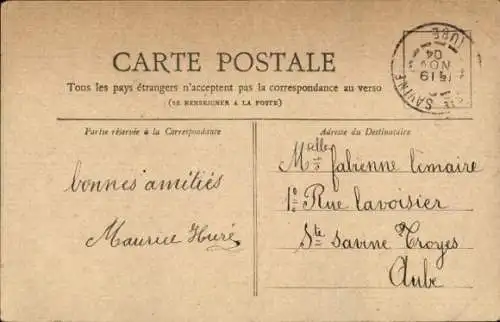 CARTE POSTALE
Tous les pays étrangers n'acceptent pas la correspondance au verso
(SE RENSEIGNER A LA POSTE)
Partie réservée à la Correspondance
bonnes amitiés
Maurice Huré
Adresse du Destinataire
Melle fabienne Lemaire
Rue lavoisier
Ste Savine Troyes
Aube
STE SAVINE
AUBE
19
NOV
04